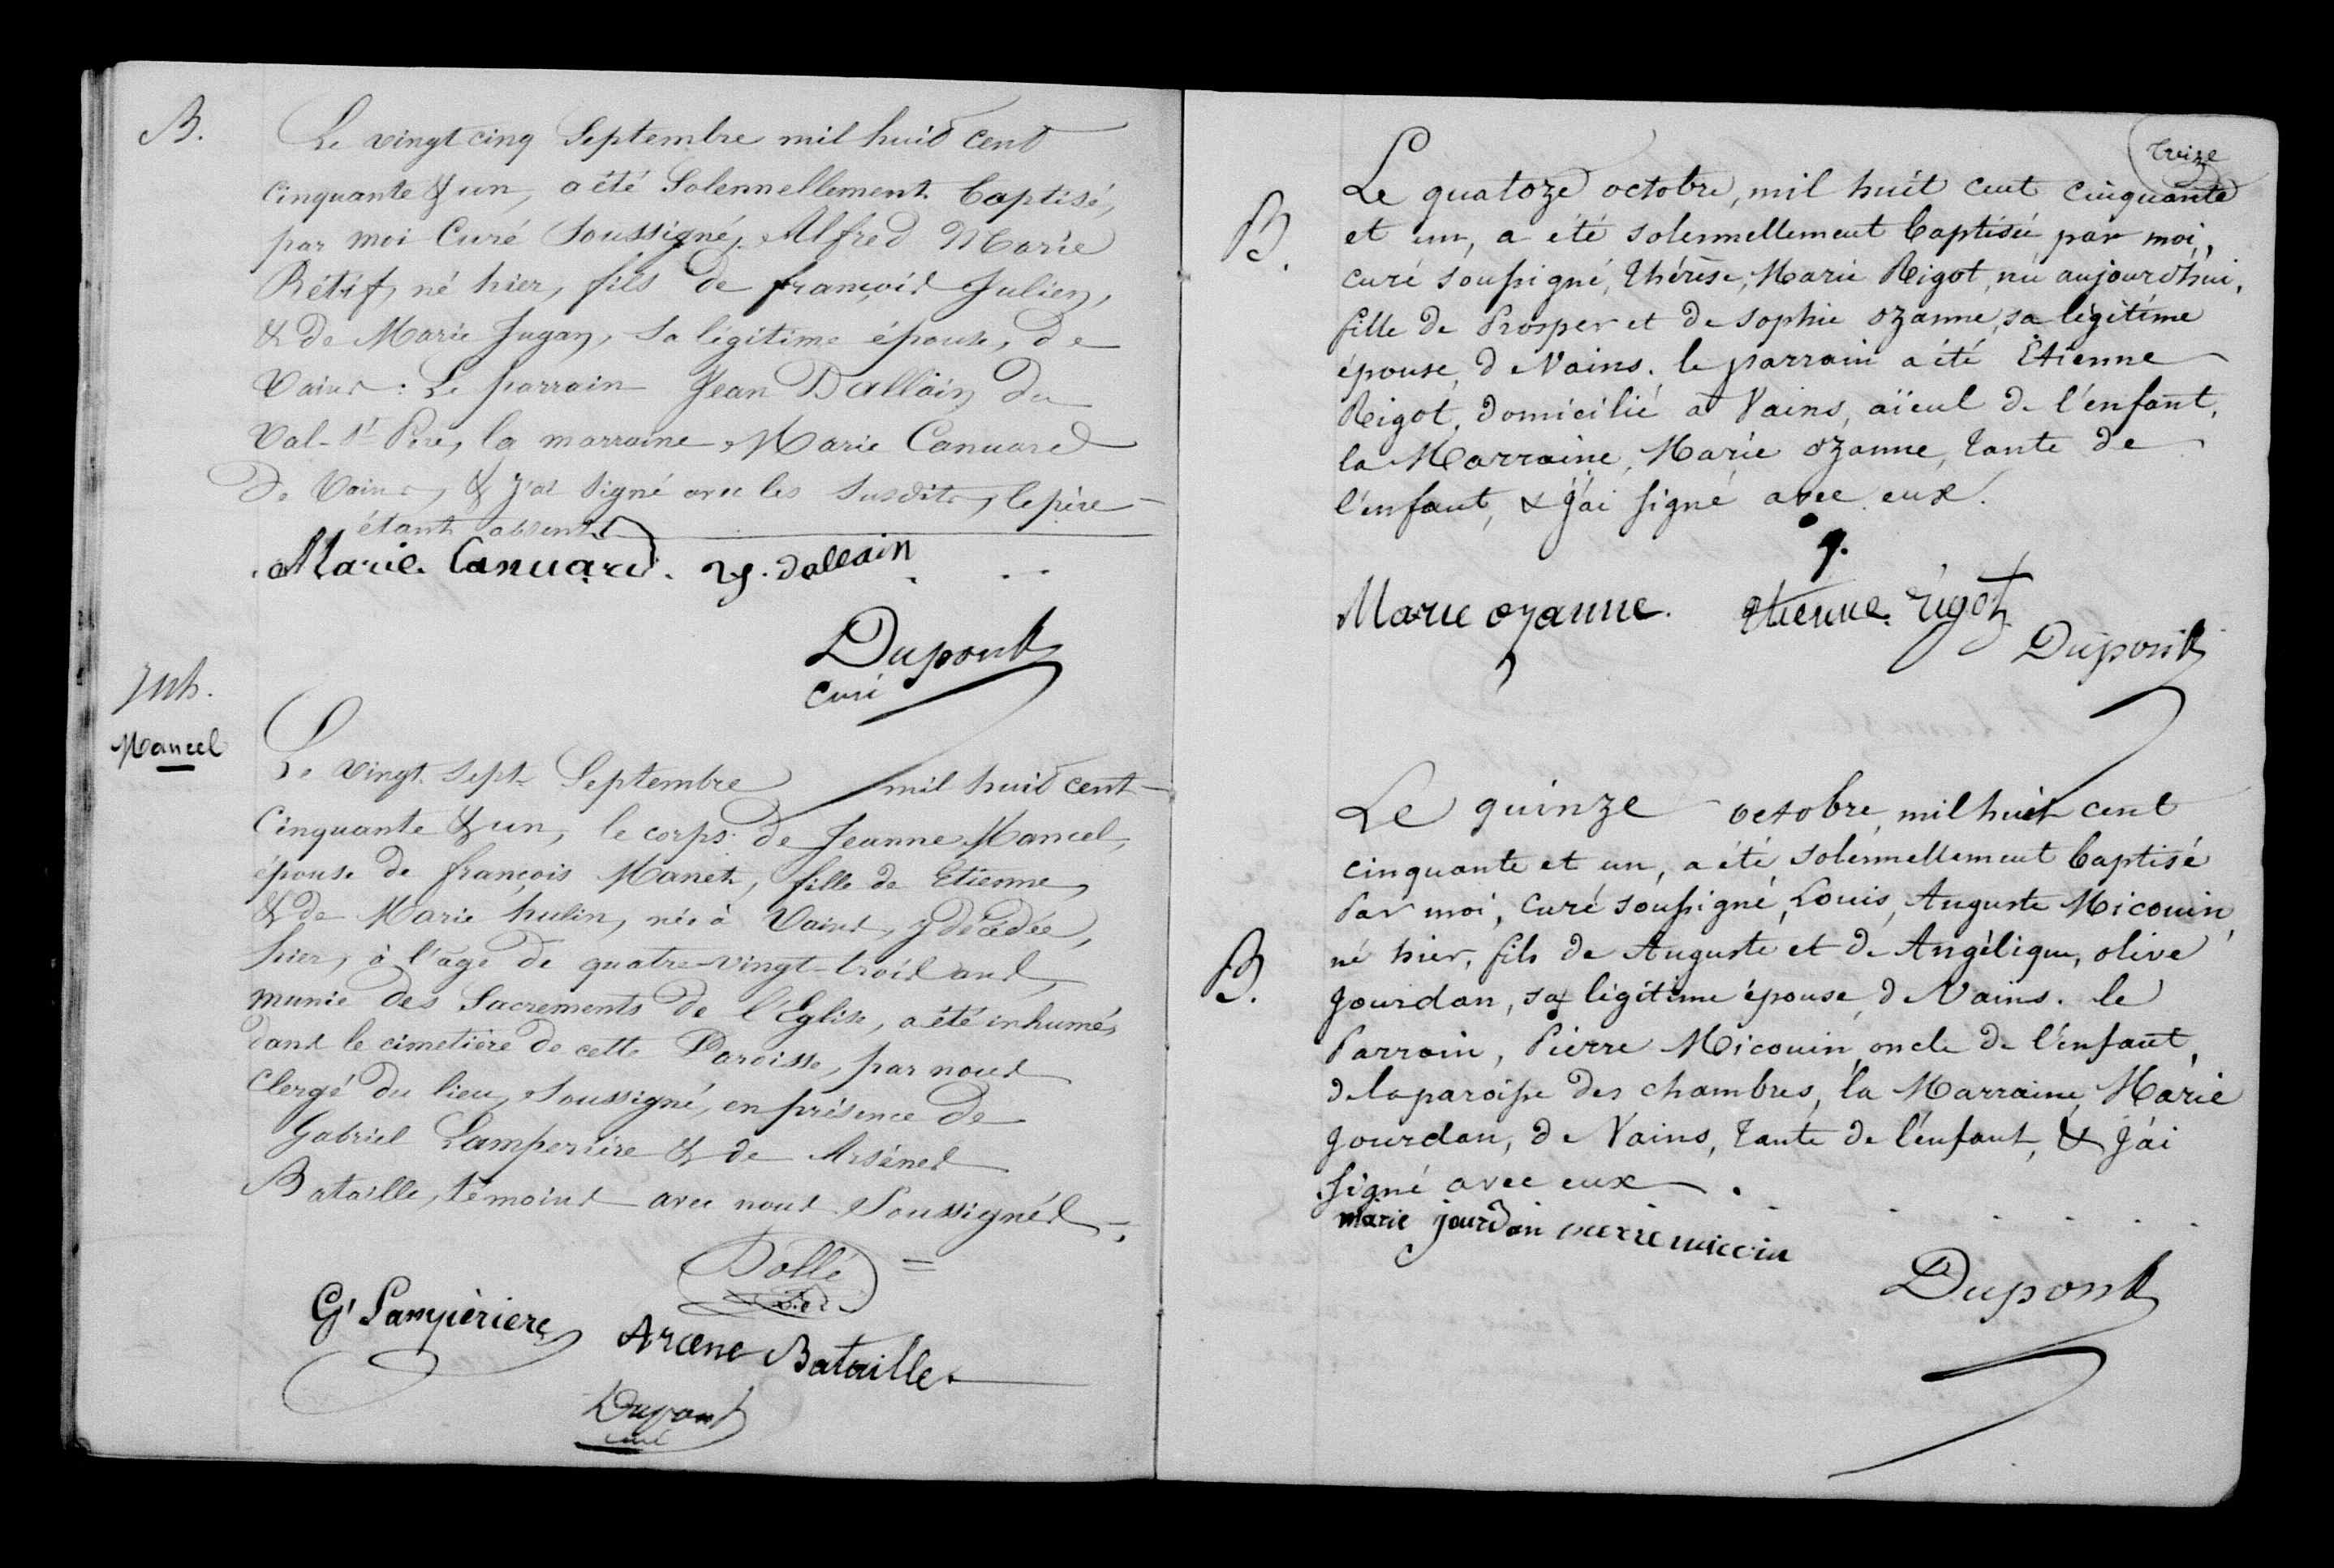 B.
Le vingt cinq Septembre mil huit cent
cinquante & un, a été Solennellement baptisé,
par moi Curé Soussigné, Alfred Marie
Rétif, né hier, fils de françois Julien,
& de Marie Jugan, sa légitime épouse, de
Vains : Le parrain Jean Dallain du
Val-St Père, la marraine, Marie Canuard
de Vains, & j'ai signé avec les susdits, le père
étant absent.
Marie Canuard. J. dallain
Dupont
curé
Inh.
Mancel
Le vingt sept Septembre mil huit cent
Cinquante & un, le corps de Jeanne Mancel,
épouse de françois Manet, fille de Etienne,
& de Marie hulin, née à Vains, y décédée,
hier, à l'age de quatre-vingt-trois ans,
munie des Sacrements de l'Eglise, a été inhumée,
dans le cimetière de cette Paroisse, par nous
Clergé du lieu, Soussigné, en présence de
Gabriel Lamperière & de Arsènes
Bataille, témoins avec nous Soussignés
Dollé
G. Lampérière
Arcene Bataille
Dupont
curé
treize
B.
Le quatoze octobre, mil huit cent cinquante
et un, a été solennellement baptisée par moi,
curé soussigné, thérèse, Marie Rigot, née aujourd'hui,
fille de Prosper et de sophie ozanne, sa légitime
épouse, de Vains. le parrain a été Etienne
Rigot, domicilié à Vains, aïeul de l'enfant,
la Marraine, Marie ozanne, tante de
l'enfant, & j'ai signé avec eux.
Marie ozanne. etienne. rigot
Dupont
B.
Le quinze octobre, mil huit cent
cinquante et un, a été solennellement baptisé
Par moi, curé soussigné, Louis, Auguste Micouin,
né hier, fils de Auguste et de Angélique, olive
Jourdan, sa légitime épouse, de Vains. le
Parrain, Pierre Micouin, oncle de l'enfant,
de la paroisse des chambres, la Marraine, Marie
Jourdan, de Vains, tante de l'enfant, & j'ai
signé avec eux.
marie jourdan
Dupont